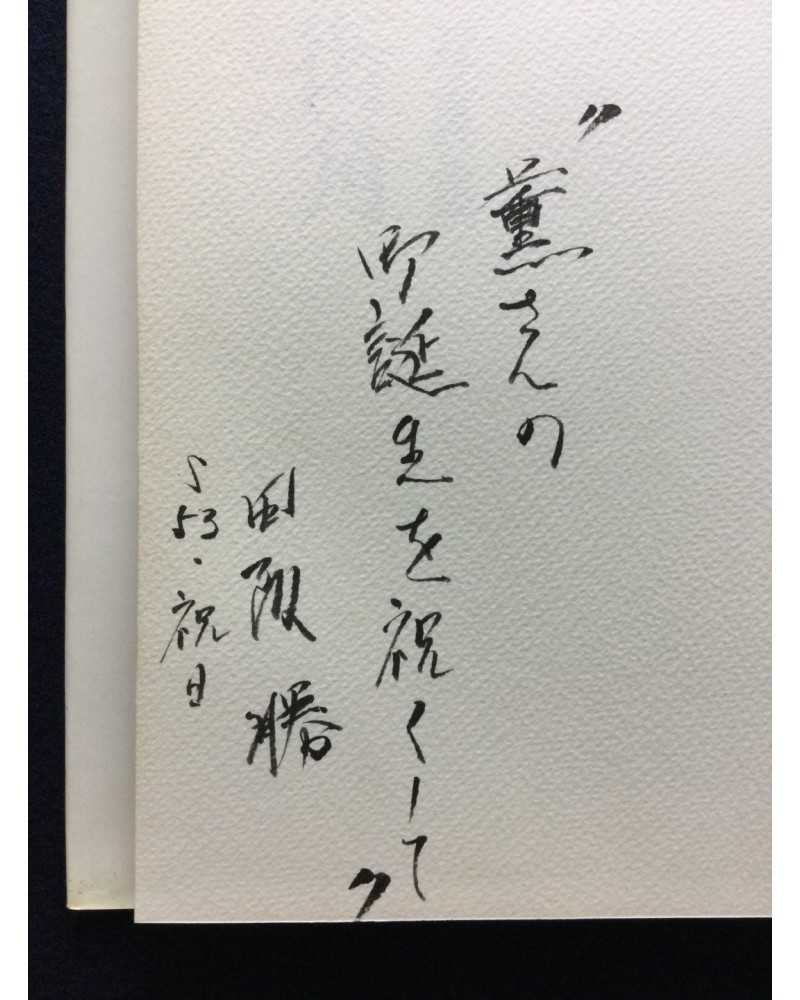 〃薫さんの
御誕生を祝くして〃
阪 勝
S53・祝日